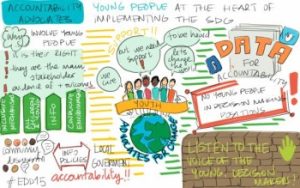 ACCOUNTABILITY
ADVOCATES
YOUNG PEOPLE AT THE HEART OF
IMPLEMENTING THE SDG
INVOLVE YOUNG
PEOPLE
IT is their RIGHT
they are the main
stakeholder
SUPPORT!!
we care
but we need
support
to be heard
let's
change
DATA
FOR
ACCOUNTABILITY
NO YOUNG PEOPLE
IN DECISION MAKING
POSITIONS
INFO
YOUTH
ADVOCATES FOR CHANGE
community
development
INFO
POLICIES
LOCAL
GOVERNMENT
#EDD15
accountability!!
LISTEN TO THE
VOICE OF THE
YOUNG, DECISION
MAKERS